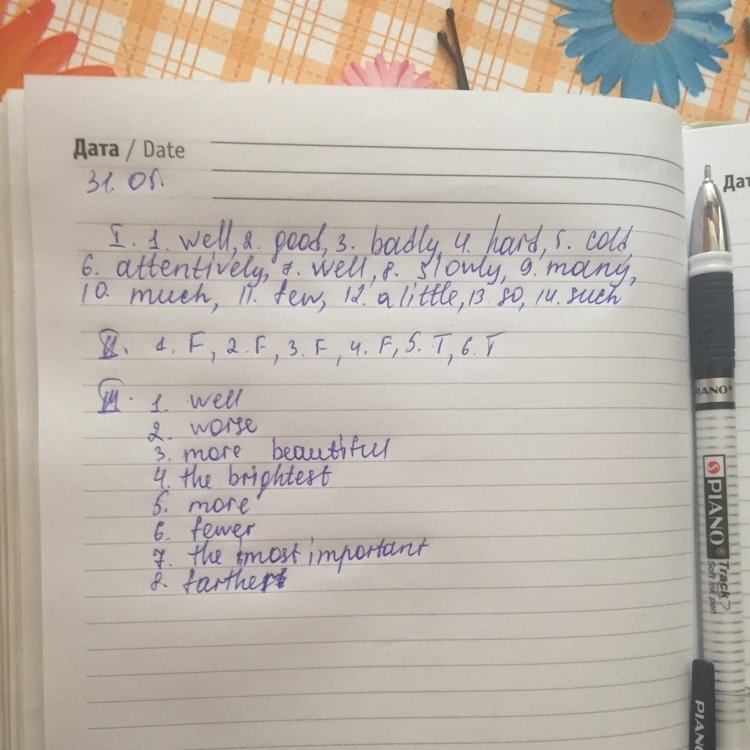 Дата / Date
31. 05.
I. 1. well, 2. good, 3. badly, 4. hard, 5. cold,
6. attentively, 7. well, 8. slowly, 9. many,
10. much, 11. few, 12. a little, 13. so, 14. such
II. 1. F, 2. F, 3. F, 4. F, 5. T, 6. T
III. 1. well
2. worse
3. more beautiful
4. the brightest
5. more
6. fewer
7. the most important
8. farthest
Дат
PIANO®
PIANO® Track?
Soft ink pen
PIANO